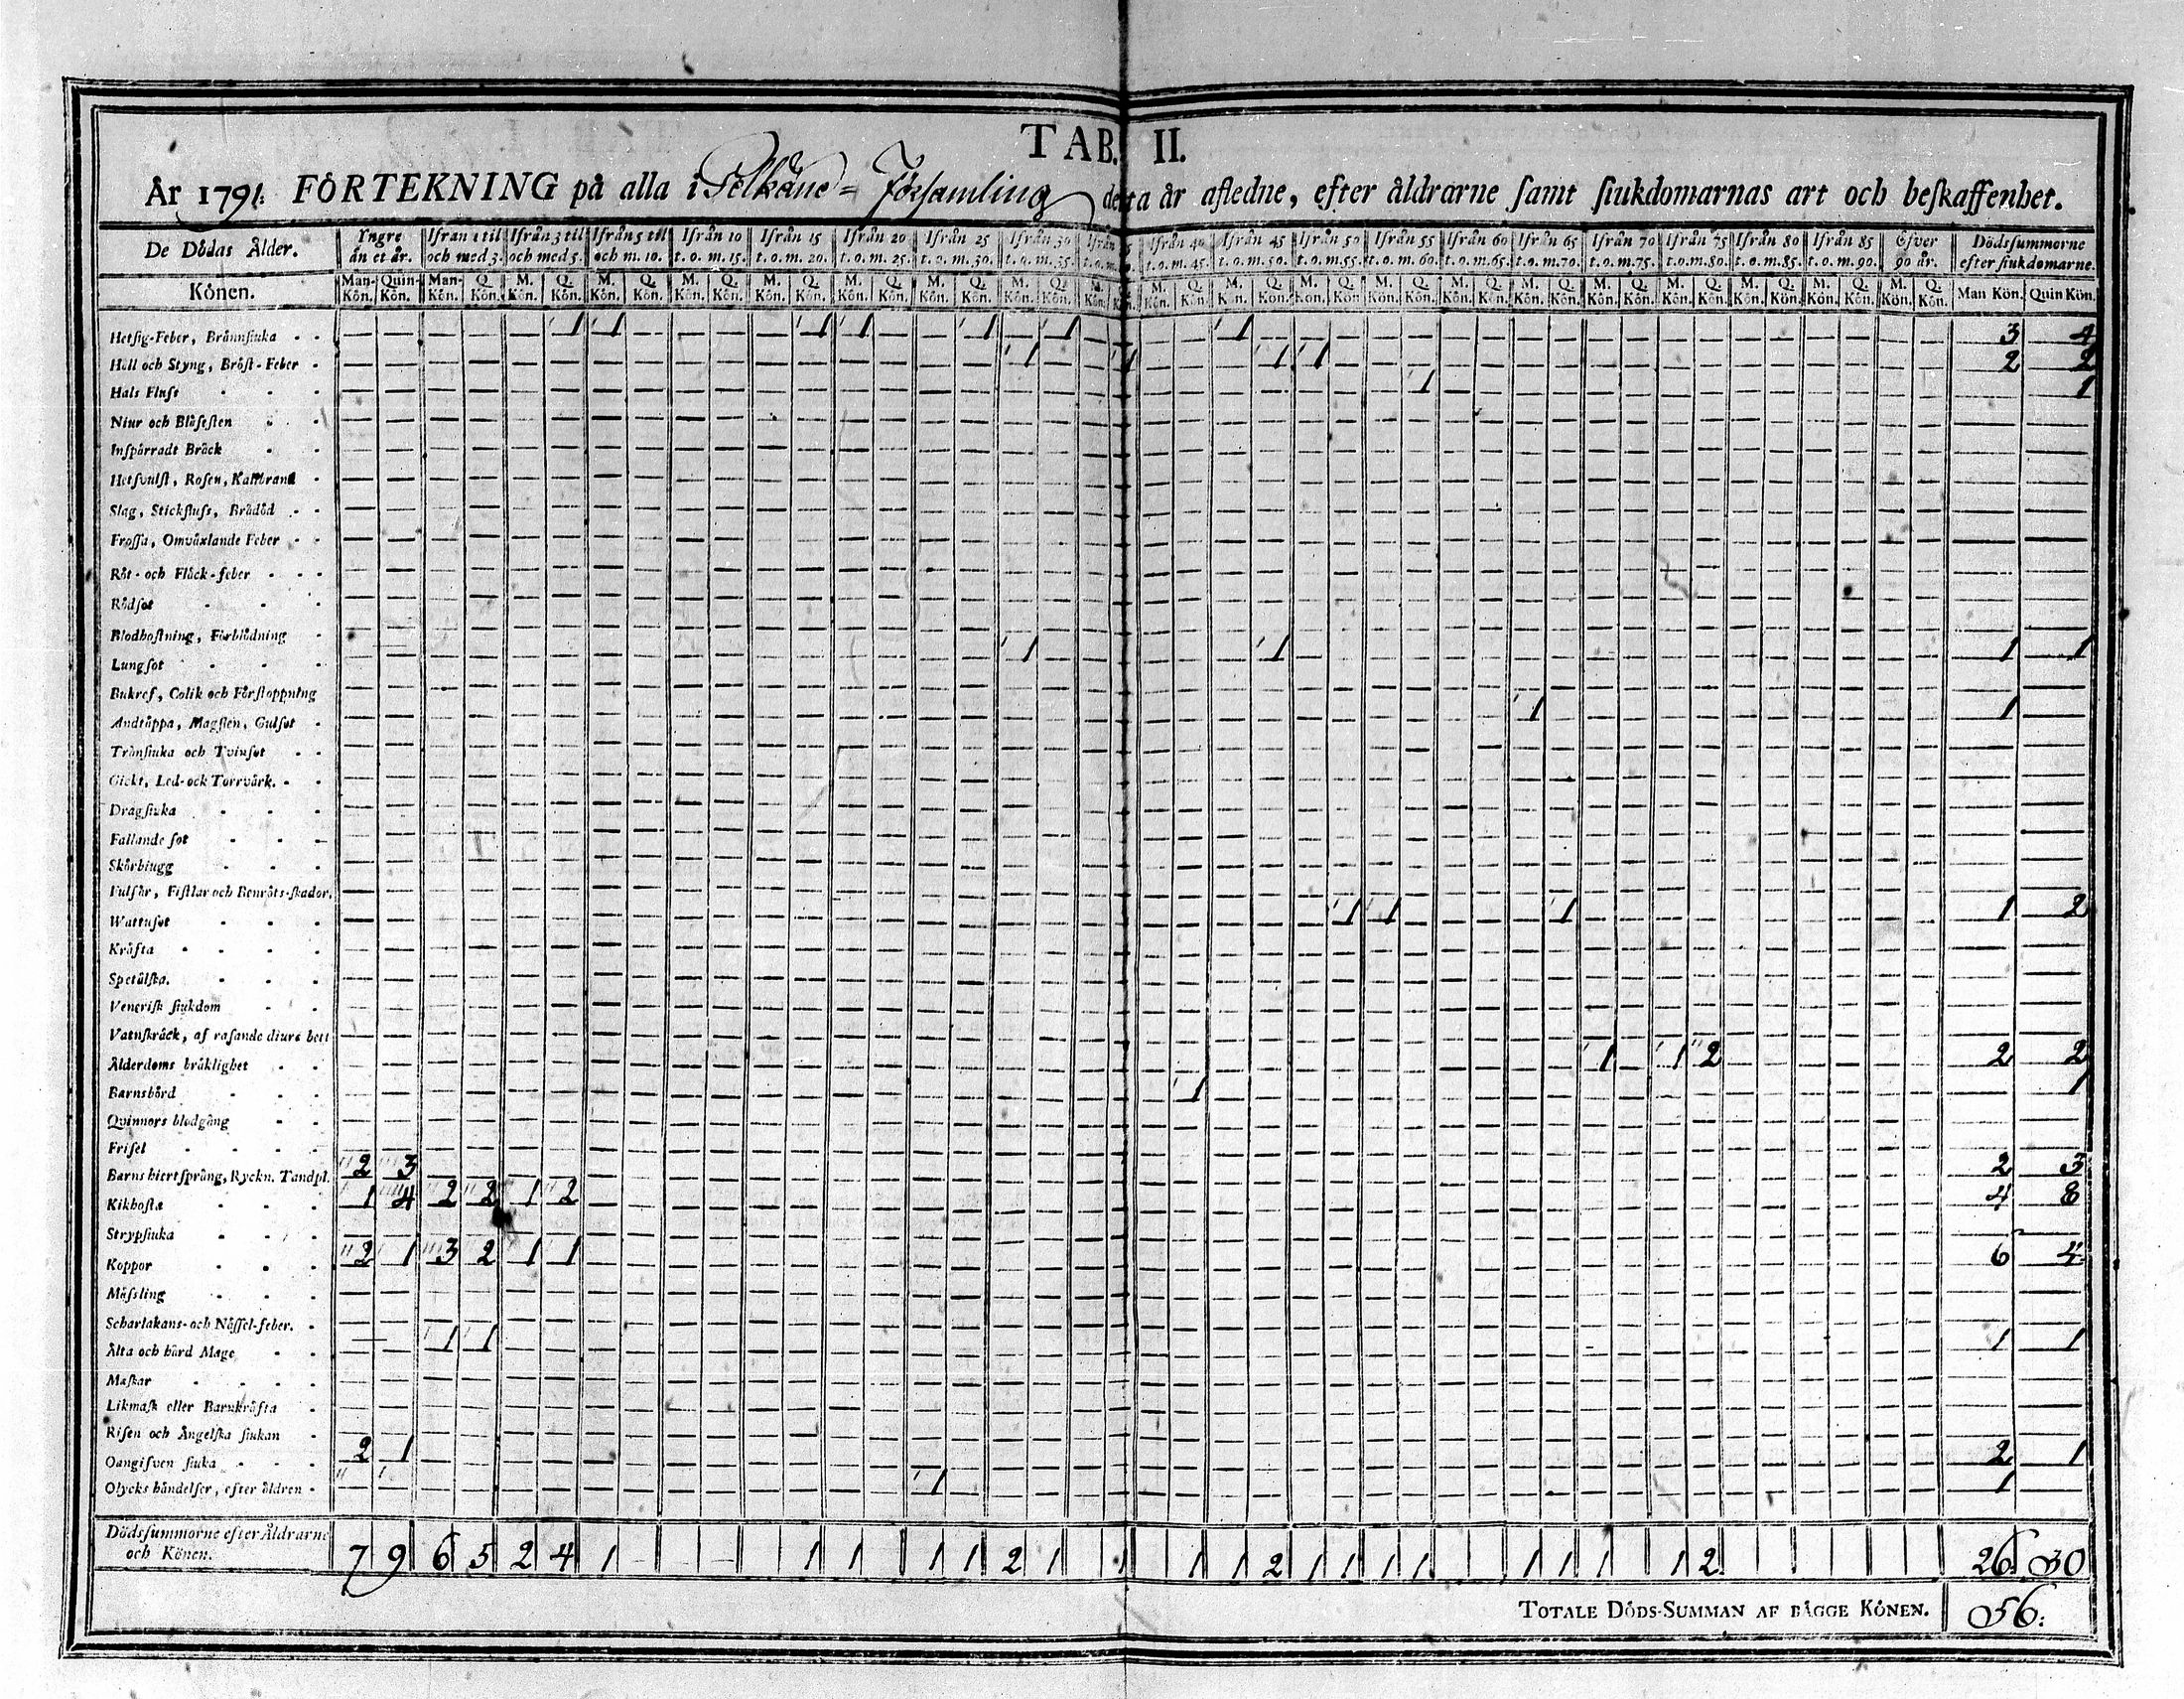 TAB. II.
År 1791: FÖRTEKNING på alla i Pelkäne Församling detta år afledne, efter åldrarne samt siukdomarnas art och beskaffenhet.
De Dödas Ålder. Yngre än et år. Ifrån 1 til och med 3. Ifrån 3 til och med 5. Ifrån 5 til och m. 10. Ifrån 10 t. o. m. 15. Ifrån 15 t. o. m. 20. Ifrån 20 t. o. m. 25. Ifrån 25 t. o. m. 30. Ifrån 30 t. o. m. 35. Ifrån 40 t. o. m. 45. Ifrån 45 t. o. m. 50. Ifrån 50 t. o. m. 55. Ifrån 55 t. o. m. 60. Ifrån 60 t. o. m. 65. Ifrån 65 t. o. m. 70. Ifrån 70 t. o. m. 75. Ifrån 75 t. o. m. 80. Ifrån 80 t. o. m. 85. Ifrån 85 t. o. m. 90. Öfver 90 år. Dödssummorne efter siukdomarne.
Könen. Man-Kön. Quin-Kön. Man-Kön. Q. Kön. M. Kön. Q. Kön. M. Kön. Q. Kön. M. Kön. Q. Kön. M. Kön. Q. Kön. M. Kön. Q. Kön. M. Kön. Q. Kön. M. Kön. Q. Kön. M. Kön. Kön. M. Kön. Q. Kön. M. Kön. Q. Kön. M. Kön. Q. Kön. M. Kön. Q. Kön. M. Kön. Q. Kön. M. Kön. Q. Kön. M. Kön. Q. Kön. M. Kön. Q. Kön. M. Kön. Q. Kön. M. Kön. Q. Kön. M. Kön. Q. Kön. Man Kön. Quin Kön.
Hetsig-Feber, Brännsiuka 1 1 1 1 1 1 1 3 4
Håll och Styng, Bröst-Feber 1 1 1 1 2 2
Hals Fluss 1 1
Niur och Blåsesten
Inspärradt Bråck
Hetsvulst, Rosen, Kallbrand
Slag, Stickfluss, Brådöd
Frossa, Omväxlande Feber
Röt- och Fläck-feber
Rödsot
Blodhostning, Förblödning
Lungsot 1 1 1 1
Bukref, Colik och Förstoppning
Andtäppa, Magsten, Gulsot 1 1
Trånsiuka och Tvinsot
Gickt, Led- och Torrvärk.
Dragsiuka
Fallande sot
Skörbiugg
Fulsår, Fistlar och Benröts-skador.
Wattusot 1 1 1 1 2
Kräfta
Spetälska.
Venerisk siukdom
Vatnskräck, af rasande diurs bett
Ålderdoms bräklighet 1 1 2 2 2
Barnsbörd 1 1
Quinnors blodgång
Frisel
Barns hiertsprång, Ryckn. Tandpl. 2 3 2 3
Kikhosta 1 4 2 2 1 2 4 8
Strypsiuka
Koppor 2 1 3 2 1 1 6 4
Mässling
Scharlakans- och Nässel-feber.
Ålta och hård Mage 1 1 1 1
Maskar
Likmask eller Barnkräfta
Risen och Ångelska siukan
Oangifven siuka 2 1 2 1
Olycks händelser, efter åldren 1 1
Dödssummorne efter Åldrarne
och Könen. 7 9 6 5 2 4 1 1 1 1 1 2 1 1 1 1 2 1 1 1 1 1 1 1 1 2 26 30
TOTALE DÖDS-SUMMAN AF BÄGGE KÖNEN. 56: